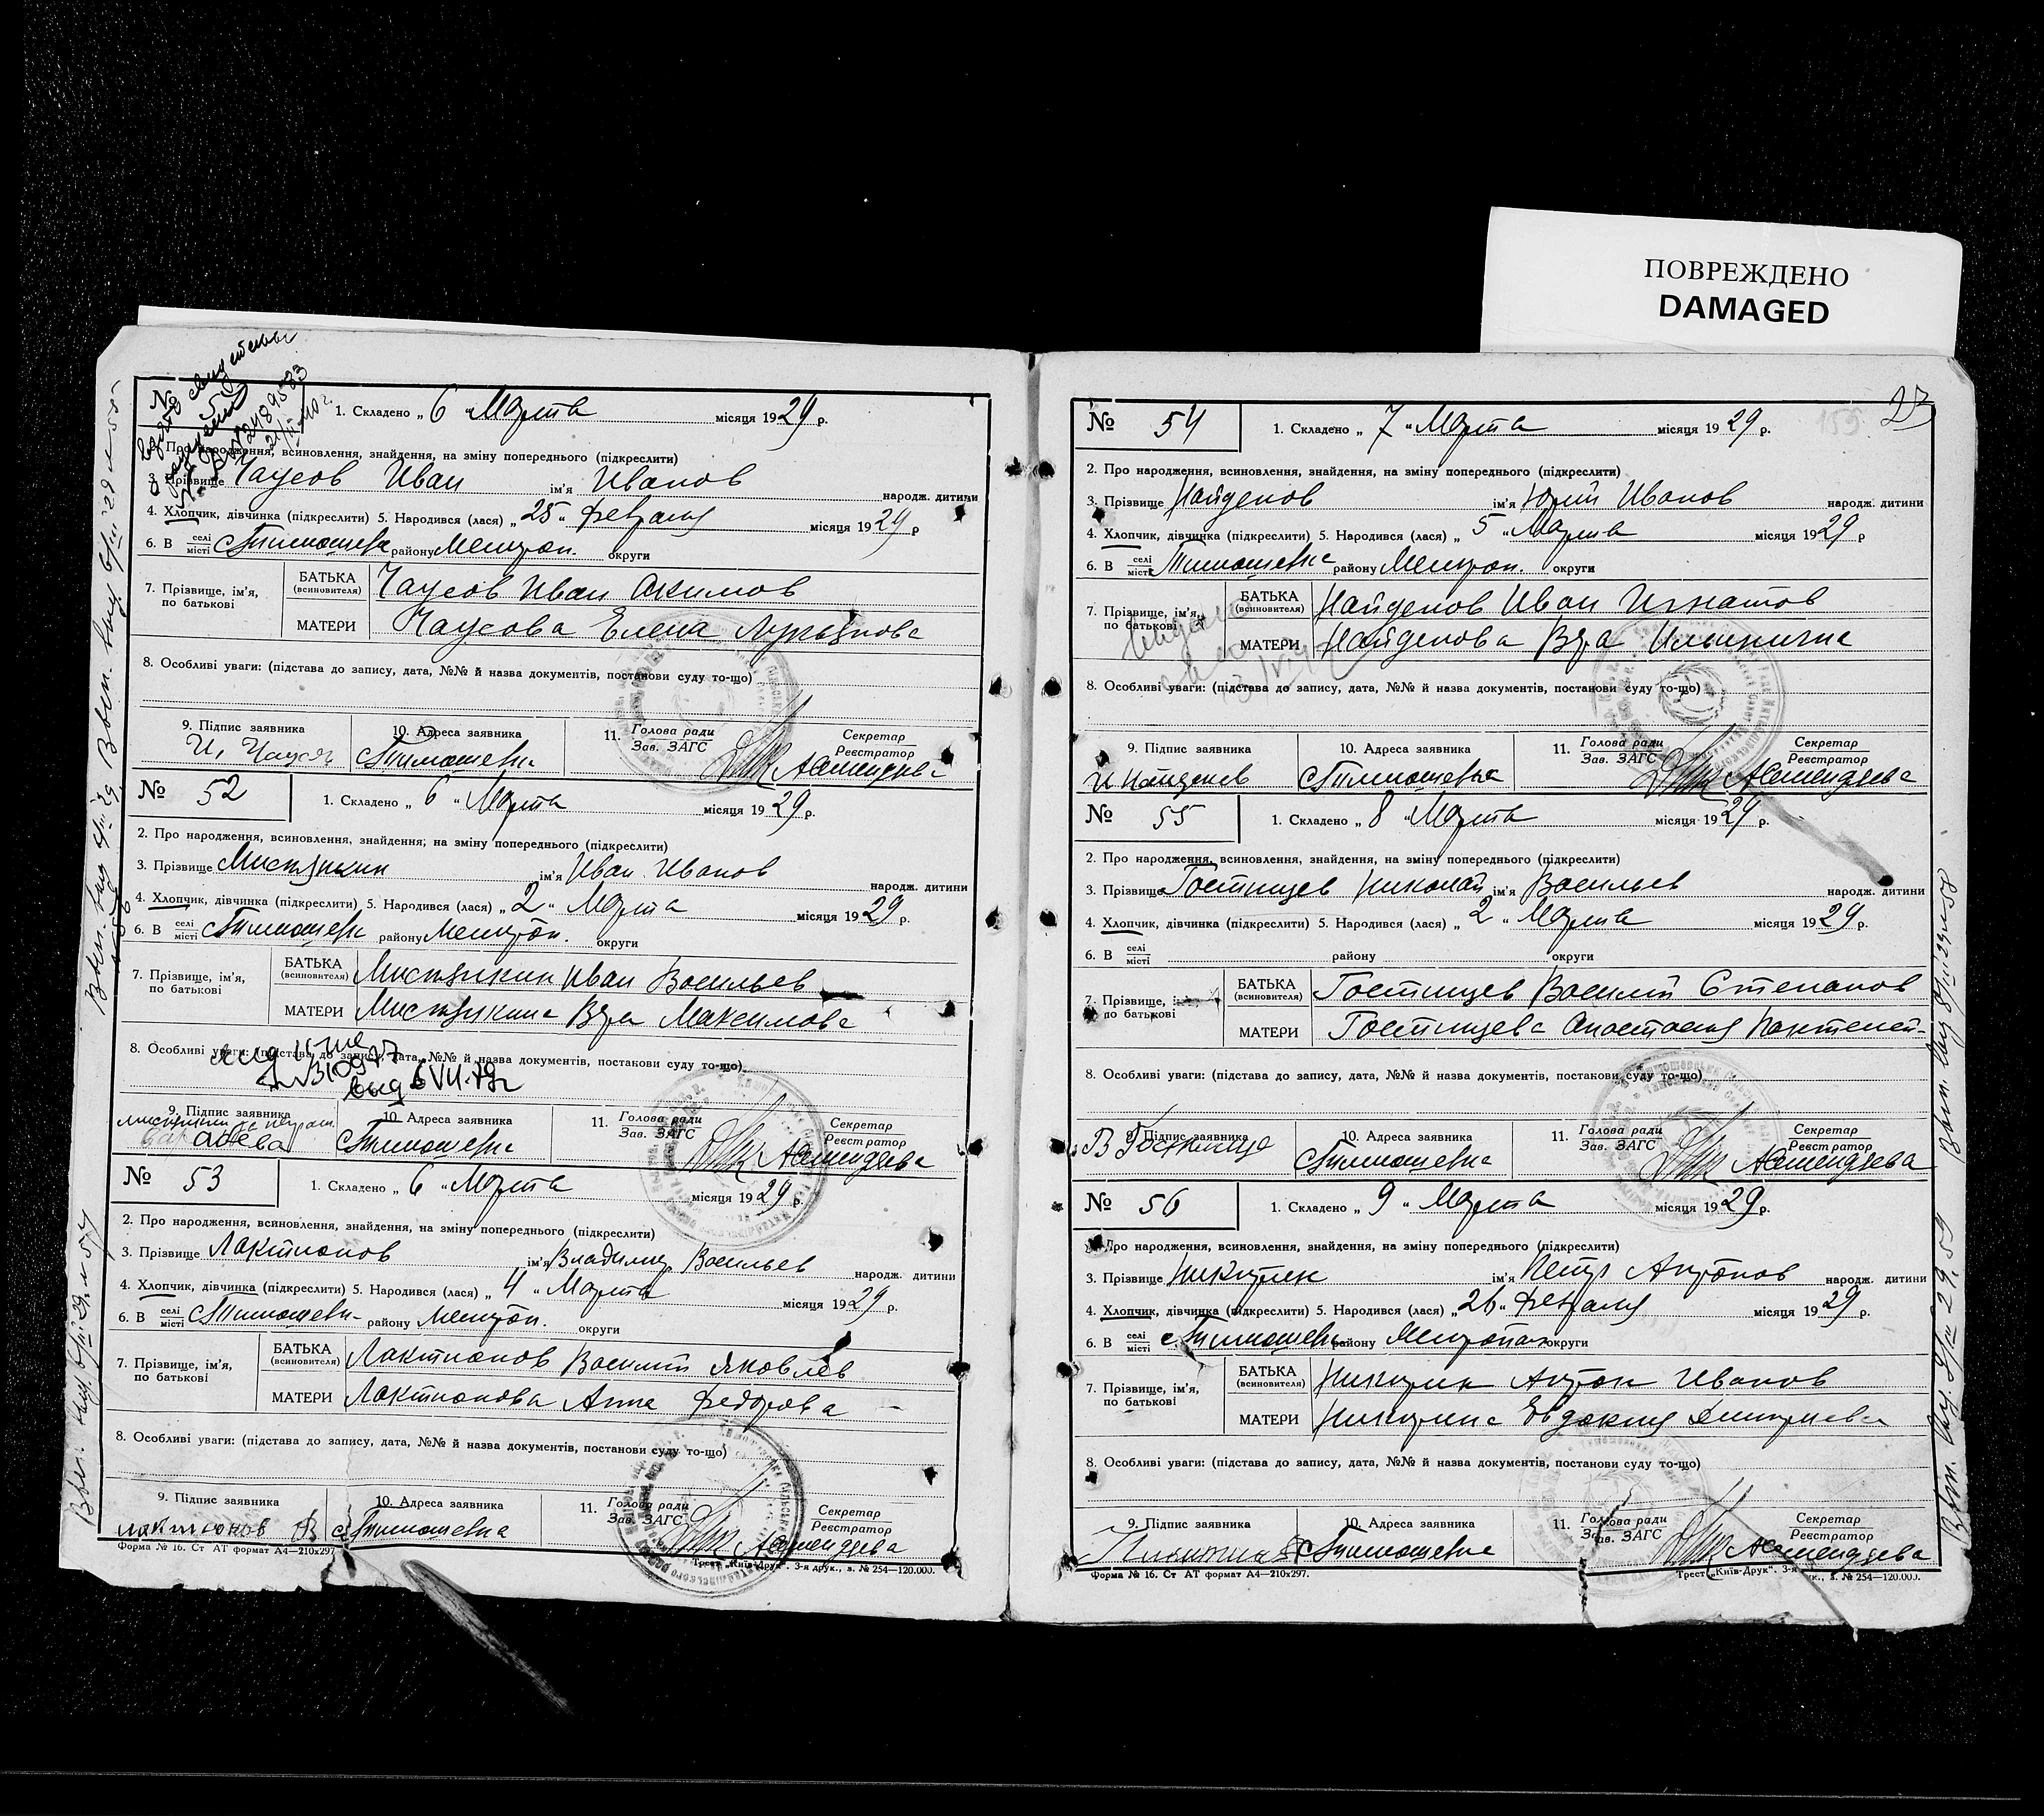 ПОВРЕЖДЕНО
DAMAGED
№ 51
1. Складено „ 6 “ Марта місяця 1929 р.
2. Про народження, всиновлення, знайдення, на зміну попереднього (підкреслити)
3. Прізвище Чаусов Иван ім'я Иванов народж. дитини
4. Хлопчик, дівчинка (підкреслити) 5. Народився (лася) „ 25 “ Февраля місяця 1929 р
6. В селі місті с Тимошевка району Мелитоп. округи
7. Прізвище, ім'я, по батькові
БАТЬКА (всиновителя) Чаусов Иван Акимов
МАТЕРИ Чаусова Елена Лукьянова
8. Особливі уваги: (підстава до запису, дата, №№ й назва документів, постанови суду то-що)
9. Підпис заявника 10. Адреса заявника 11. Голова ради Зав. ЗАГС Секретар Реєстратор
И. Чаусов с Тимошевка
№ 52
1. Складено „ 6 “ Марта місяця 1929 р.
2. Про народження, всиновлення, знайдення, на зміну попереднього (підкреслити)
3. Прізвище ім'я Иван Иванов народж. дитини
4. Хлопчик, дівчинка (підкреслити) 5. Народився (лася) „ 2 “ Марта місяця 1929 р.
6. В селі місті с Тимошевк району Мелитоп. округи
7. Прізвище, ім'я, по батькові
БАТЬКА (всиновителя) Иван Васильев
МАТЕРИ Вера Максимова
8. Особливі уваги: (підстава до запису, дата, №№ й назва документів, постанови суду то-що)
9. Підпис заявника 10. Адреса заявника 11. Голова ради Зав. ЗАГС Секретар Реєстратор
с Тимошевка
№ 53
1. Складено „ 6 “ Марта місяця 1929 р.
2. Про народження, всиновлення, знайдення, на зміну попереднього (підкреслити)
3. Прізвище Лактионов ім'я Владимир Васильев народж. дитини
4. Хлопчик, дівчинка (підкреслити) 5. Народився (лася) „ 4 “ Марта місяця 1929 р.
6. В селі місті с Тимошевк- району Мелитоп. округи
7. Прізвище, ім'я, по батькові
БАТЬКА (всиновителя) Лактионов Василий Яковлев
МАТЕРИ Лактионова Анна Федорова
8. Особливі уваги: (підстава до запису, дата, №№ й назва документів, постанови суду то-що)
9. Підпис заявника 10. Адреса заявника 11. Голова ради Зав. ЗАГС Секретар Реєстратор
Лактионов В с Тимошевка
Форма № 16. Ст АТ формат А4—210х297
Трест „Київ-Друк“. 3-я друк., з. № 254—120.000.
23
№ 54
1. Складено „ 7 “ Марта місяця 1929 р.
2. Про народження, всиновлення, знайдення, на зміну попереднього (підкреслити)
3. Прізвище Найденов ім'я Юрий Иванов народж. дитини
4. Хлопчик, дівчинка (підкреслити) 5. Народився (лася) „ 5 “ Марта місяця 1929 р
6. В селі місті Тимошевка району Мелитоп. округи
7. Прізвище, ім'я, по батькові
БАТЬКА (всиновителя) Найденов Иван Игнатов
МАТЕРИ Найденова Вера Ильинична
8. Особливі уваги: (підстава до запису, дата, №№ й назва документів, постанови суду то-що)
9. Підпис заявника 10. Адреса заявника 11. Голова ради Зав. ЗАГС Секретар Реєстратор
И Найденов с Тимошевка
№ 55
1. Складено „ 8 “ Марта місяця 1929 р.
2. Про народження, всиновлення, знайдення, на зміну попереднього (підкреслити)
3. Прізвище Гостищев Николай ім'я Васильев народж. дитини
4. Хлопчик, дівчинка (підкреслити) 5. Народився (лася) „ 2 “ Марта місяця 1929 р.
6. В селі місті району округи
7. Прізвище, по батькові
БАТЬКА (всиновителя) Гостищев Василий Степанов
МАТЕРИ Гостищева Анастасия
8. Особливі уваги: (підстава до запису, дата, №№ й назва документів, постанови суду то-що)
9. Підпис заявника 10. Адреса заявника 11. Голова ради Зав. ЗАГС Секретар Реєстратор
с Тимошевка
№ 56
1. Складено „ 9 “ Марта місяця 1929 р.
2. Про народження, всиновлення, знайдення, на зміну попереднього (підкреслити)
3. Прізвище ім'я Петр Антонов народж. дитини
4. Хлопчик, дівчинка (підкреслити) 5. Народився (лася) „ 26 “ Февраля місяця 1929 р.
6. В селі місті с Тимошевк району округи
7. Прізвище, ім'я, по батькові
БАТЬКА (всиновителя) Антон Иванов
МАТЕРИ Евдокия Дмитриева
8. Особливі уваги: (підстава до запису, дата, №№ й назва документів, постанови суду то-що)
9. Підпис заявника 10. Адреса заявника 11. Голова ради Зав. ЗАГС Секретар Реєстратор
с Тимошевка
Форма № 16. Ст АТ формат А4—210х297.
Трест „Київ-Друк“. 3-я друк., з. № 254—120.000.